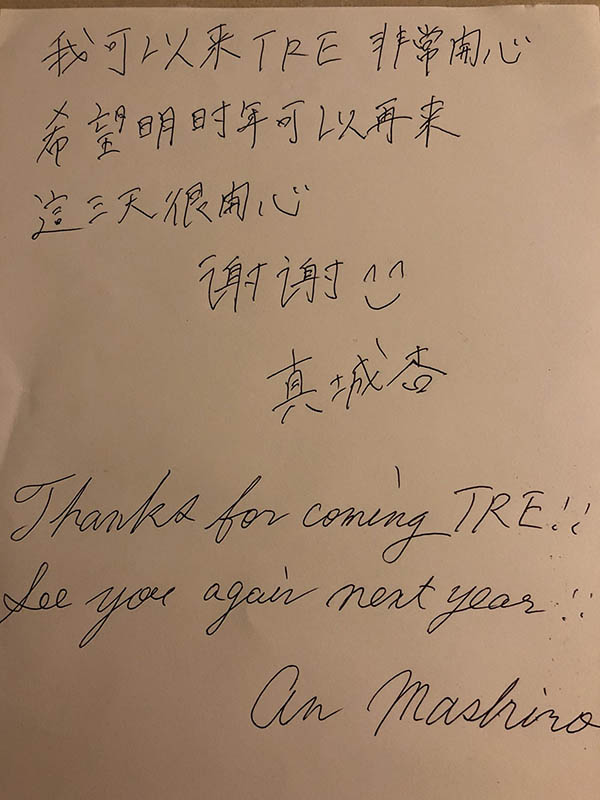 我可以来TRE 非常開心
希望明时年可以再来
這三天很開心
谢谢
真城杏
Thanks for coming TRE!!
See you again next year!!
An Mashiro